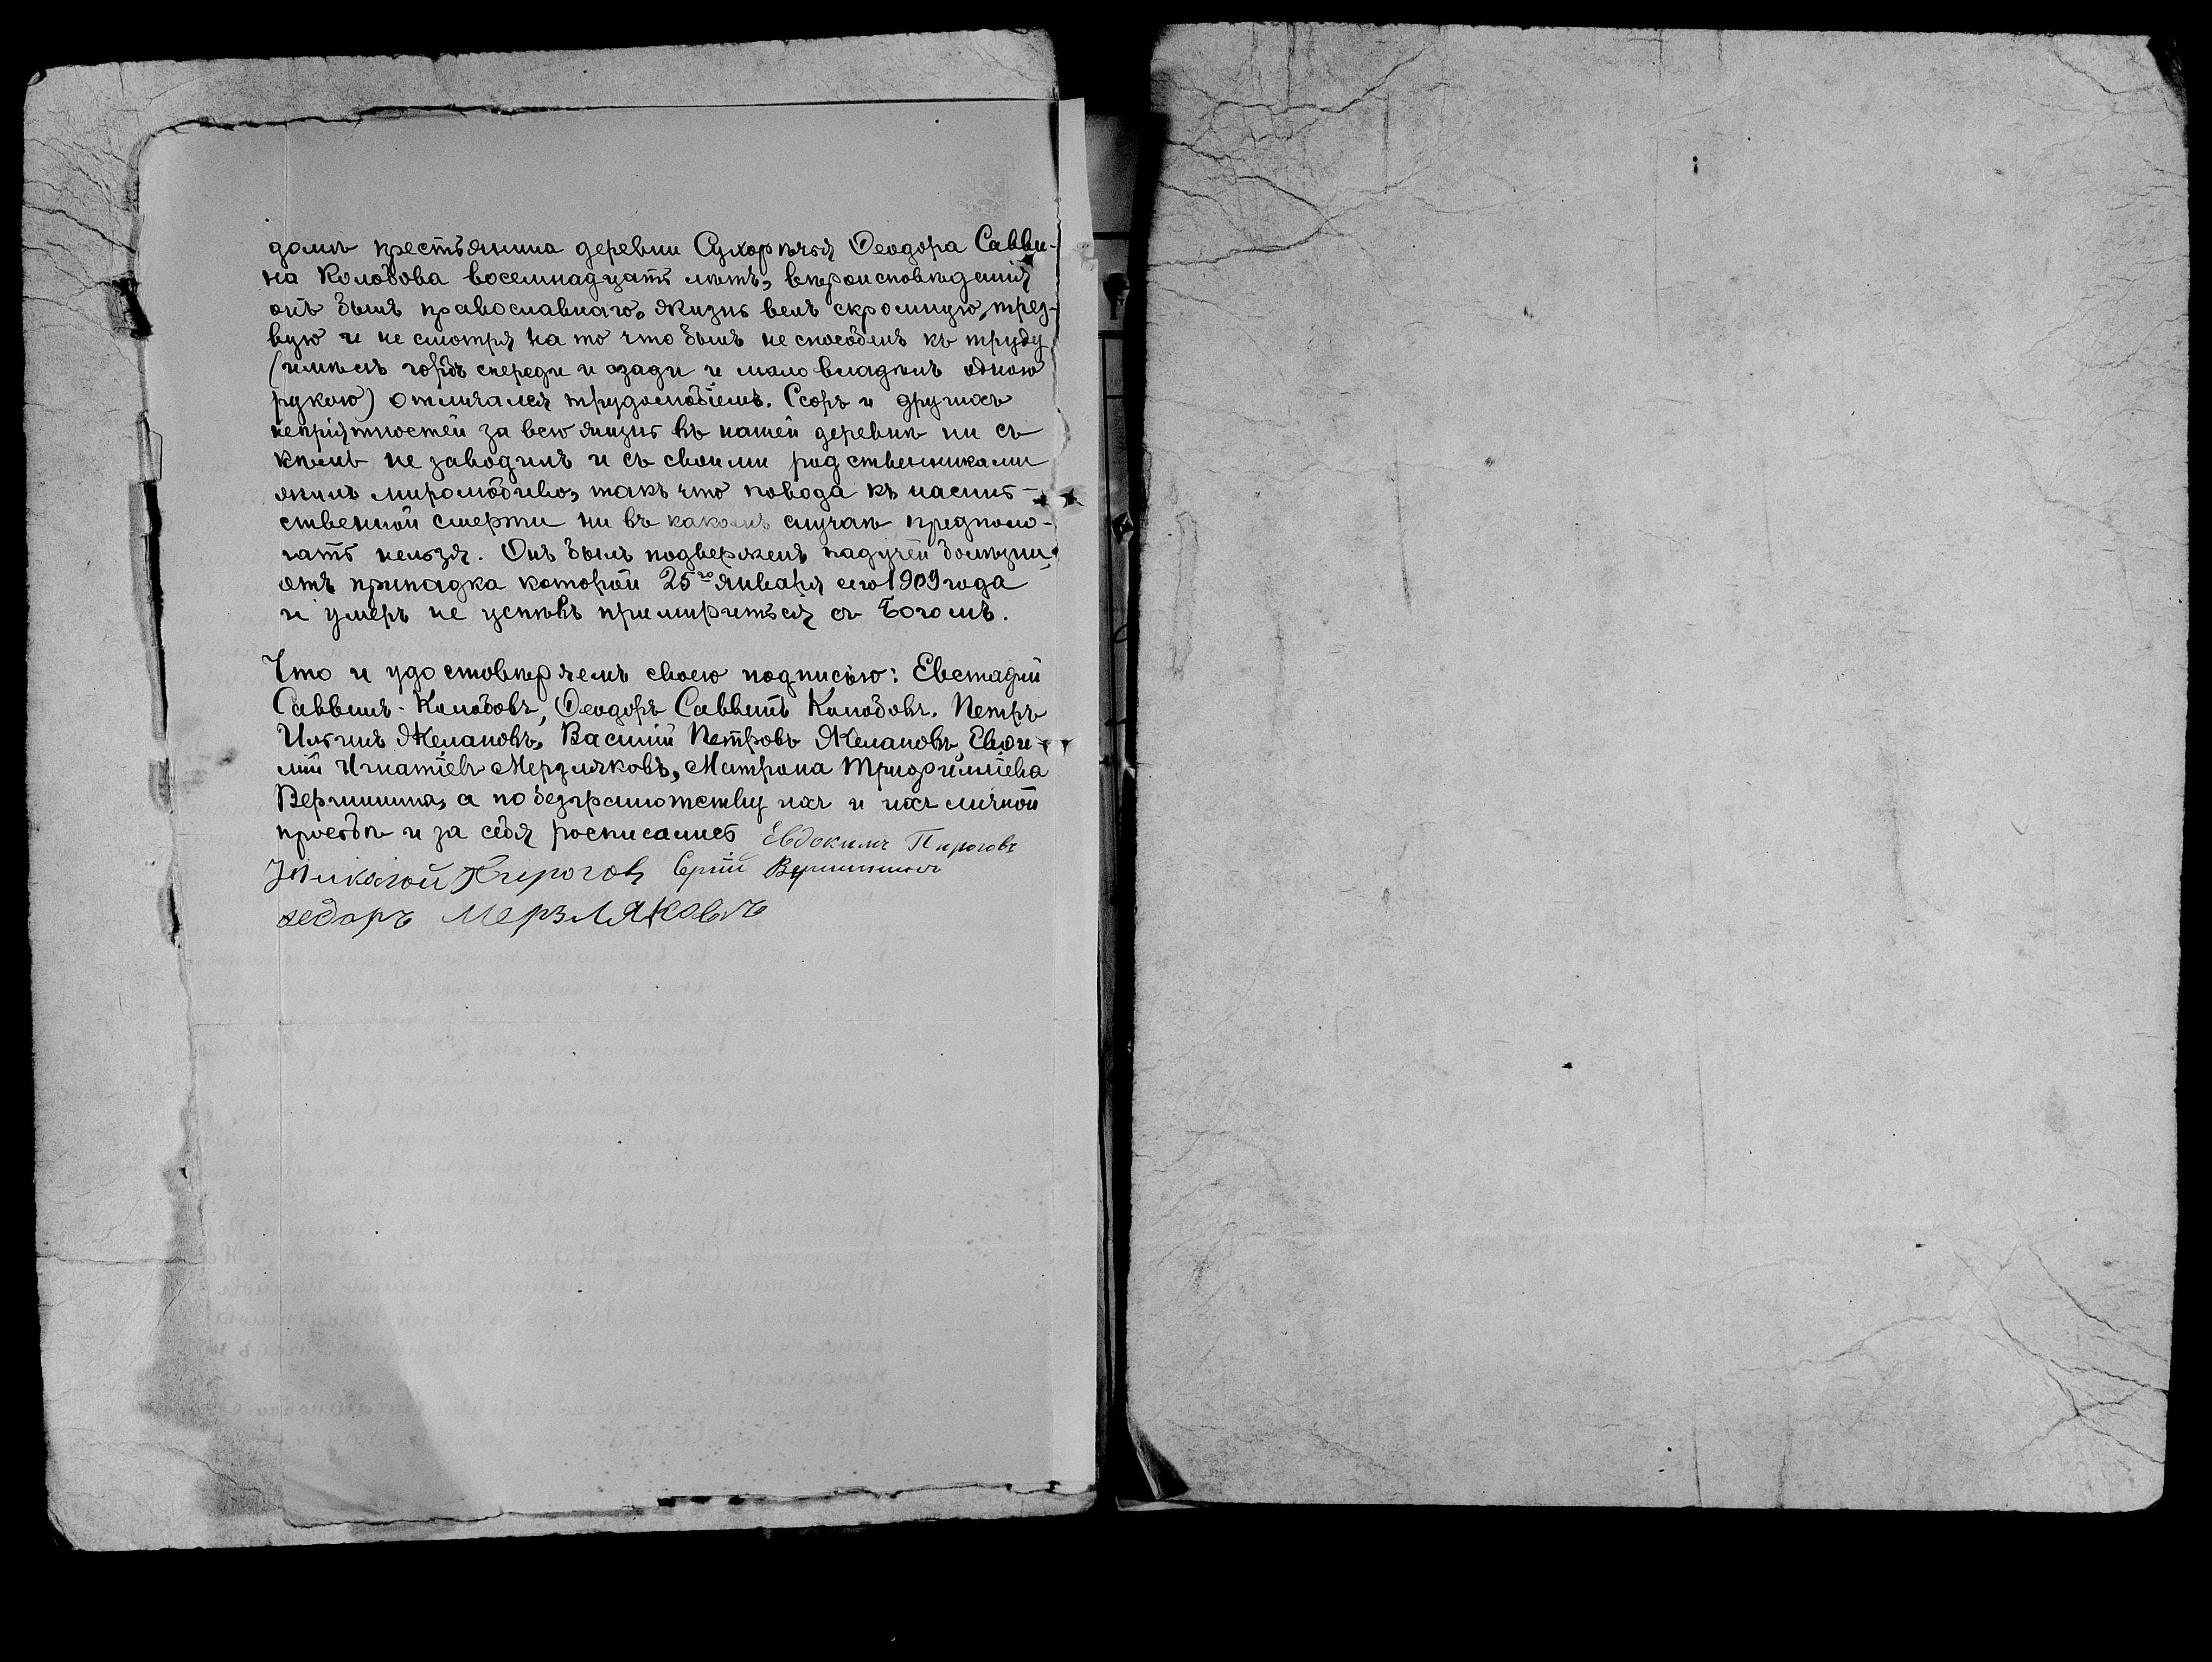 домѣ крестьянина деревни Сухорѣчья Ѳеодора Савви-
на Колобова восемнадцать лѣтъ, вѣроисповѣданія
онъ былъ православнаго, жизнь велъ скромную, трез-
вую и не смотря на то что былъ не способенъ къ труду
(имѣлъ горбъ спереди и сзади и мало владѣлъ одною
рукою) отличался трудолюбіемъ. Ссоръ и другихъ
непріятностей за всю жизнь въ нашей деревнѣ ни съ
кѣмъ не заводилъ и съ своими родственниками
жилъ миролюбиво, такъ что повода къ насиль-
ственной смерти ни въ какомъ случаѣ предполо-
гать нельзя. Онъ былъ подверженъ падучей болѣзни,
отъ припадка которой 25го января сего 1909 года
и умеръ не успѣвъ примириться съ Богомъ.
Что и удостовѣряемъ своею подписью: Евстафій
Саввинъ Колобовъ, Ѳеодоръ Саввинъ Колобовъ, Петръ
Ильинъ Желановъ, Василій Петровъ Желановъ, Евфи-
мій Игнатіевъ Мерзляковъ, Матрона Трифилліева
Вершинина, а по безграмотству ихъ и ихъ личной
просьбѣ и за себя росписались Евдокимъ Пироговъ
Николой Пирогов Сергій Вершининъ
Федоръ Мерзляковъ